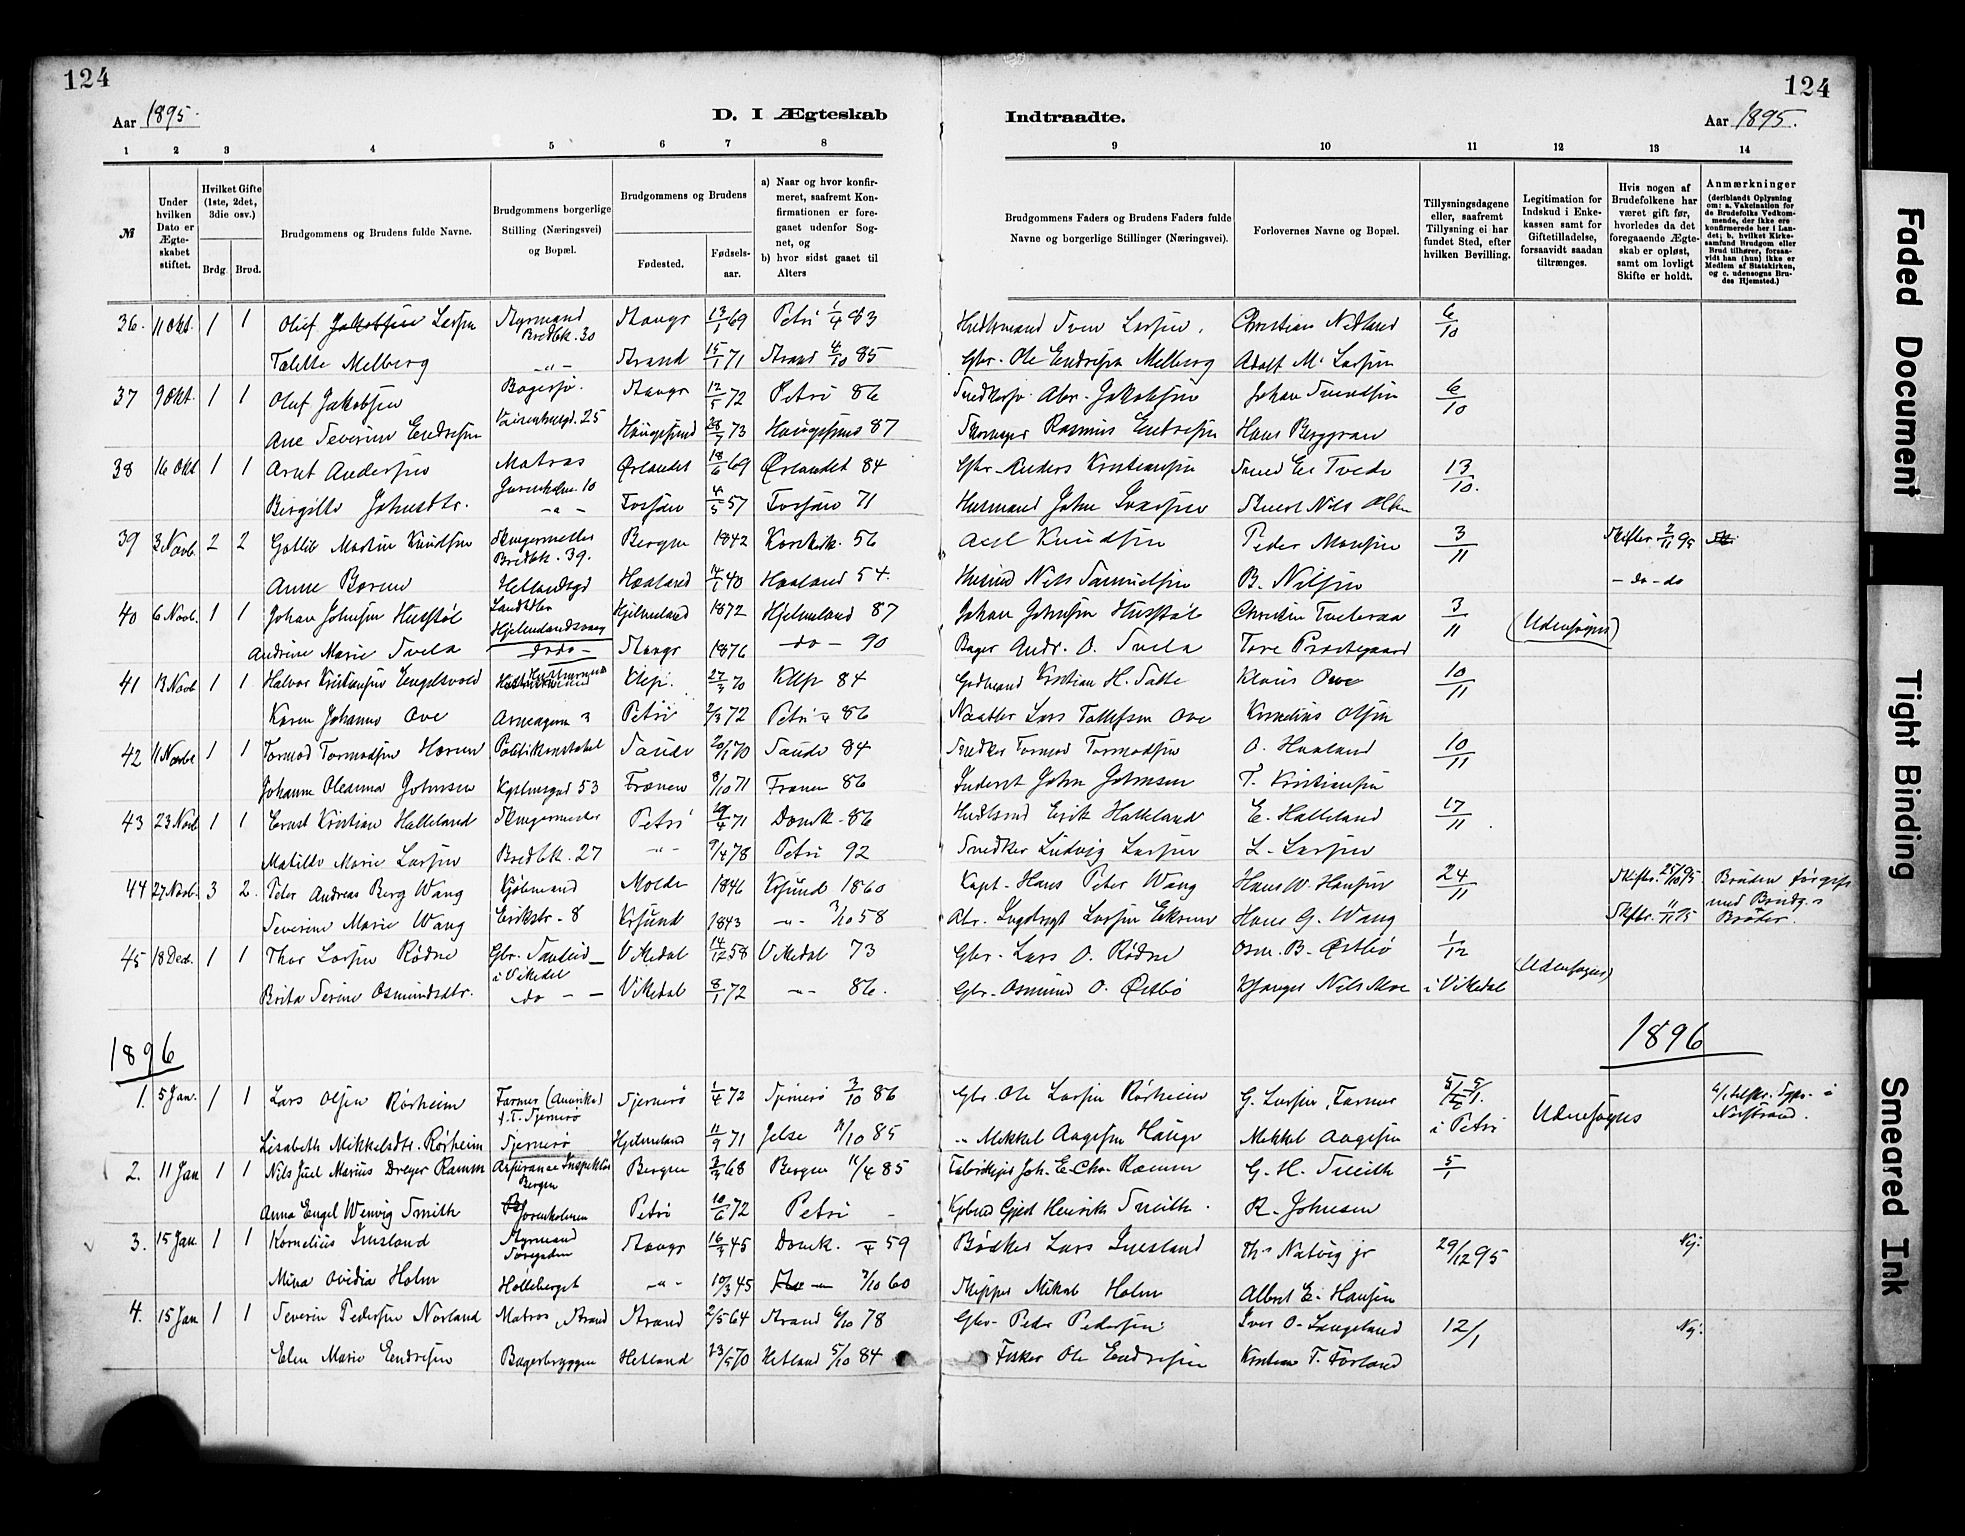 124
124
Aar 1895.
D. I Ægteskab
Indtraadte.
Aar 1895.
1 2 3 4 5 6 7 8 9 10 11 12 13 14
№
Under hvilken Dato er Ægteskabet stiftet.
Hvilket Gifte (1ste, 2det, 3die osv.)
Brdg. Brud.
Brudgommens og Brudens fulde Navne.
Brudgommens borgerlige Stilling (Næringsvei) og Bopæl.
Brudgommens og Brudens
Fødested.
Fødselsaar.
a) Naar og hvor konfirmeret, saafremt Konfirmationen er foregaaet udenfor Sognet, og
b) hvor sidst gaaet til Alters
Brudgommens Faders og Brudens Faders fulde Navne og borgerlige Stillinger (Næringsvei).
Forlovernes Navne og Bopæl.
Tillysningsdagene eller, saafremt Tillysning ei har fundet Sted, efter hvilken Bevilling.
Legitimation for Indskud i Enkekassen samt for Giftetilladelse, forsaavidt saadan tiltrænges.
Hvis nogen af Brudefolkene har været gift før, hvorledes da det foregaaende Ægteskab er opløst, samt om lovligt Skifte er holdt.
Anmærkninger (deriblandt Oplysning om: a. Vakcination for de Brudefolks Vedkommende, der ikke ere konfirmerede her i Landet; b. hvilket Kirkesamfund Brudgom eller Brud tilhører, forsaavidt han (hun) ikke er Medlem af Statskirken, og c. udensogns Brudes Hjemsted.)
36. 11 Okt. 1 1 Oluf Jakobsen Larsen Styrmand Bredbk. 30 Stavgr 13/1 69 Petri 1/4 83 Sven Larsen. Christian Nedland 6/10
Talette Melberg -"- Strand 15/1 71 Strand 4/10 85 Gbr. Ole Endresen Melberg Adolf M. Larsen
37 9 Okt. 1 1 Oluf Jakobsen Bagersv. Stavgr 12/5 72 Petri 86 Abr. Jakobsen Johan Svendsen 6/10
Ane Severine Endresen 25 Haugesund 28/7 73 Haugesund 87 Rasmus Endresen Hans Berggren
38 16 Okt 1 1 Arnt Andersen Matros Ørlandet 18/6 69 Ørlandet 84 Gbr. Anders Kristiansen Tvede 13/10.
Birgitte Johnsdtr. Jorenholm. 10 -"- Fossan 4/5 57 Fossan 71 Husmand John Ivarsen Nils Olsen
39 3 Novb. 2 2 Gotlib Martin Knudsen Skrædermester Bredbk. 39. Bergen 1842 Korskirk. 56 Axel Knudsen Peder Monsen 3/11 Skifter. 2/11 95
Anne Boren Hetlandsgd Haaland 14/1 40 Haaland 54. Nils Samuelsen B. Nilsen - do - do
40 6 Novb. 1 1 Johan Johnsen Husstøl Landhdlr Hjelmelandsvaag Hjelmeland 1872 Hjelmeland 87 Johan Johnsen Husstøl Christen Tveteraa 3/11 (Udensogns)
Andrine Marie Tvela do do - Stavgr 1876 - do - 90 Bager Andr. O. Tvela Tore Prestegaard
41 13 Novb 1 1 Halvor Kristiansen Engelsvold Klep. 27/3 70 Klep 84 Gadmand Kristian H. Salte Klaus Owe 10/11
Karen Johanne Ove Asmeagern 3 Petri 2/3 72 Petri 86 Lars Tollefsen Ove Kornelius Olsen
42 11 Novbr 1 1 Tormod Tormodsen Haven Politikonstabel Saude 20/1 70 Saude 84 Snedker Tormod Tormodsen O. Haaland 10/11
Johanne Oleanna Johnsen 53 Frænen 8/10 71 Frænen 86 Inderst John Johnsen T. Kristiansen
43 23 Novb 1 1 Ernst Kristian Halleland Skrædermester Petri 4 71 Domk. 86 Erik Halleland E. Halleland 17/11.
Matilde Marie Larsen Bredbk. 27 -"- 9/4 78 Petri 92 Snedker Ludvig Larsen L. Larsen
44 27 Novb. 3 2. Peter Andreas Berg Wang Kjøbmand Molde 1846 Krsund 1860 Kapt. Hans Peter Wang Hans W. Hansen 24/11 Skiftr. 25/10 95 Bruden før gift med Brudg.s Broder.
Severine Marie Wang Erikstr. 8 Krsund 1843 -"- 3/10 58 Larsen Ekrem Hans G. Wang Skftr. 11/11 95
45 18 Decb. 1 1 Thor Larsen Rødne Gbr. Sandeid i Vikedal Vikedal 14/12 58 Vikedal 73 Gbr. Lars O. Rødne Osm. B. Østbø 1/12 (Udensogns)
Brita Serine Osmundsdtr. do - - Vikedal 8/1 72 -"- 86. Gbr. Osmund O. Østbø Nils Moe i Vikedal
1896
1896
1. 5 Jan. 1 1 Lars Olsen Rørheim Farmer (Amerika) f. T. Sjernerø Sjernerø 1/4 72 Sjernerø 3/10 86 Gbr. Ole Larsen Rørheim G. Larsen, Farmer i Petri Udensogns Nerstrand.
Lisabeth Mikkelsdtr. Rørheim Sjernerø Hjelmeland 11/9 71 Jelse 11/10 85 -"- Mikkel Aagesen Hauge Mikkel Aagesen
2. 11 Jan 1 1 Nils Juel Marius Dreyer Ramm Aspirance Inspektør Bergen Bergen 2/3 68 Bergen 11/4 85 Joh. E. Chr. Ramm G. H. Smith 5/1
Anna Engel Wenvig Smith Jorenholmen Petri 10/6 72 Petri - Gjert Henrik Smith. R. Johnsen
3. 15 Jan 1 1 Kornelius Inesland Styrmand Stavgr 16/3 45 Domk. /4 59 Bødker Lars Inesland Th. Natvig jr 29/12 95 Nej.
Mina Ovidia Holm Holleberget -"- 10/3 45 -"- 7/10 60 Skipper Mikal Holm Albert E. Hansen
4. 15 Jan 1 1 Severin Pedersen Norland Matros, Strand Strand 2/5 64 Strand 6/10 78 Gbr. Peder Pedersen Iver O. Langeland 12/1 Nej.
Elen Marie Endresen Bagerbryggen Hetland 23/5 70 Hetland 5/10 84 Fisker Ole Endresen Kristian T. Førland
Faded Document
Tight Binding
Smeared Ink